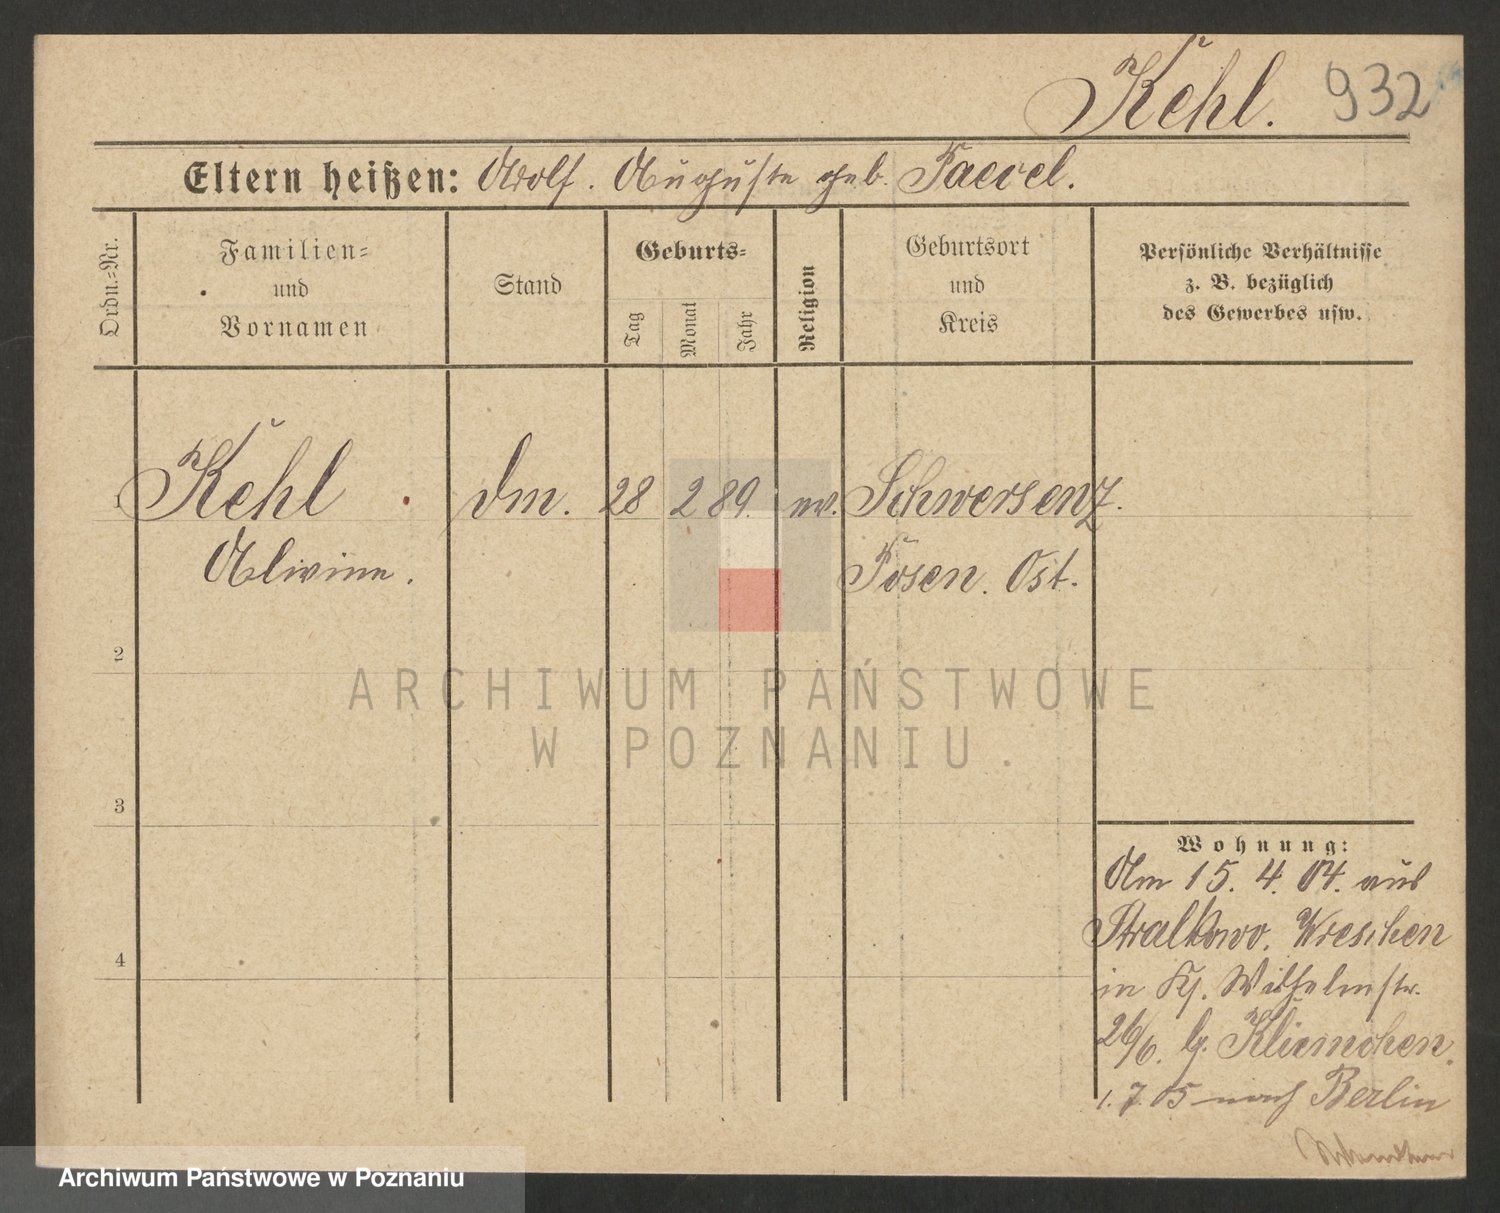 Kehl. 932
Eltern heißen: Adolf. Auguste geb.
Ordn.-Nr.
Familien-
und
Vornamen
Stand
Geburts-
Tag
Monat
Jahr
Religion
Geburtsort
und
Kreis
Persönliche Verhältnisse
z. B. bezüglich
des Gewerbes usw.
Kehl dm. 28 2 89. ev. Schwersenz.
Alwine. Posen. Ost.
2
3
4
ARCHIWUM PAŃSTWOWE
W POZNANIU.
Wohnung:
Am 15. 4. 04. aus
Stralkowo. Wreschen
in Kj. Wilhelmstr.
26/6. b. Kliemchen.
1. 7. 05 nach Berlin
Archiwum Państwowe w Poznaniu